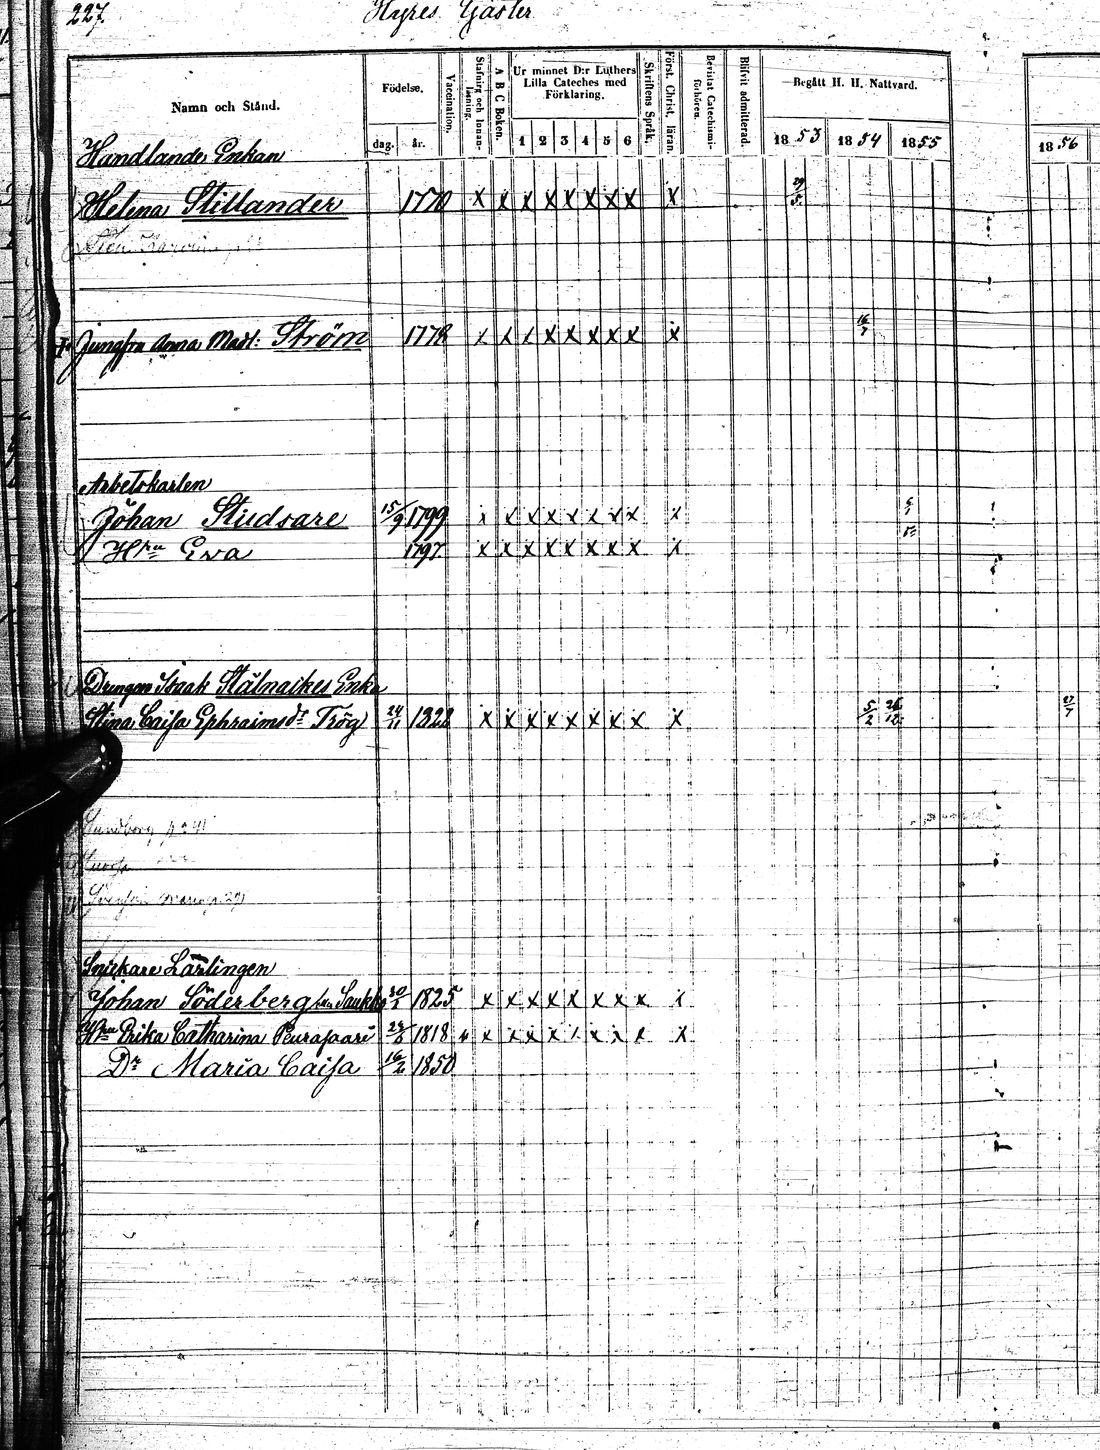 227.
Hyres Gäster
Namn och Stånd.
Födelse.
dag.
år.
Vaccination.
Stafning och Innan-läsning.
A B C Boken.
Ur minnet D:r Luthers Lilla Cateches med Förklaring.
1 2 3 4 5 6
Skriftens Språk.
Först. Christ. läran.
Bevistat Catechismi-förhören.
Blifvit admitterad.
Begått H. H. Nattvard.
1853 1854 1855
1856
Handlande Enkan
Helena Stillander 1770 x x x x x x x x x 29/5
Jungfru Anna Madl: Ström 1778 x x x x x x x x x 16/7
Arbetskarlen
Johan Studsare 15/9 1799 x x x x x x x x x
Hru Eva 1797 x x x x x x x x x
Drengen Isaak Stålnackes Enka
Stina Caisa Ephraimsdr Trög 24/11 1828 x x x x x x x x x 5/2 26/12 27/7
Lundborg
Snickare Lärlingen
Johan Söderberg 1825 x x x x x x x x x
Hru Erika Catharina 1818 x x x x x x x x x
Dr Maria Caisa 16/2 1850